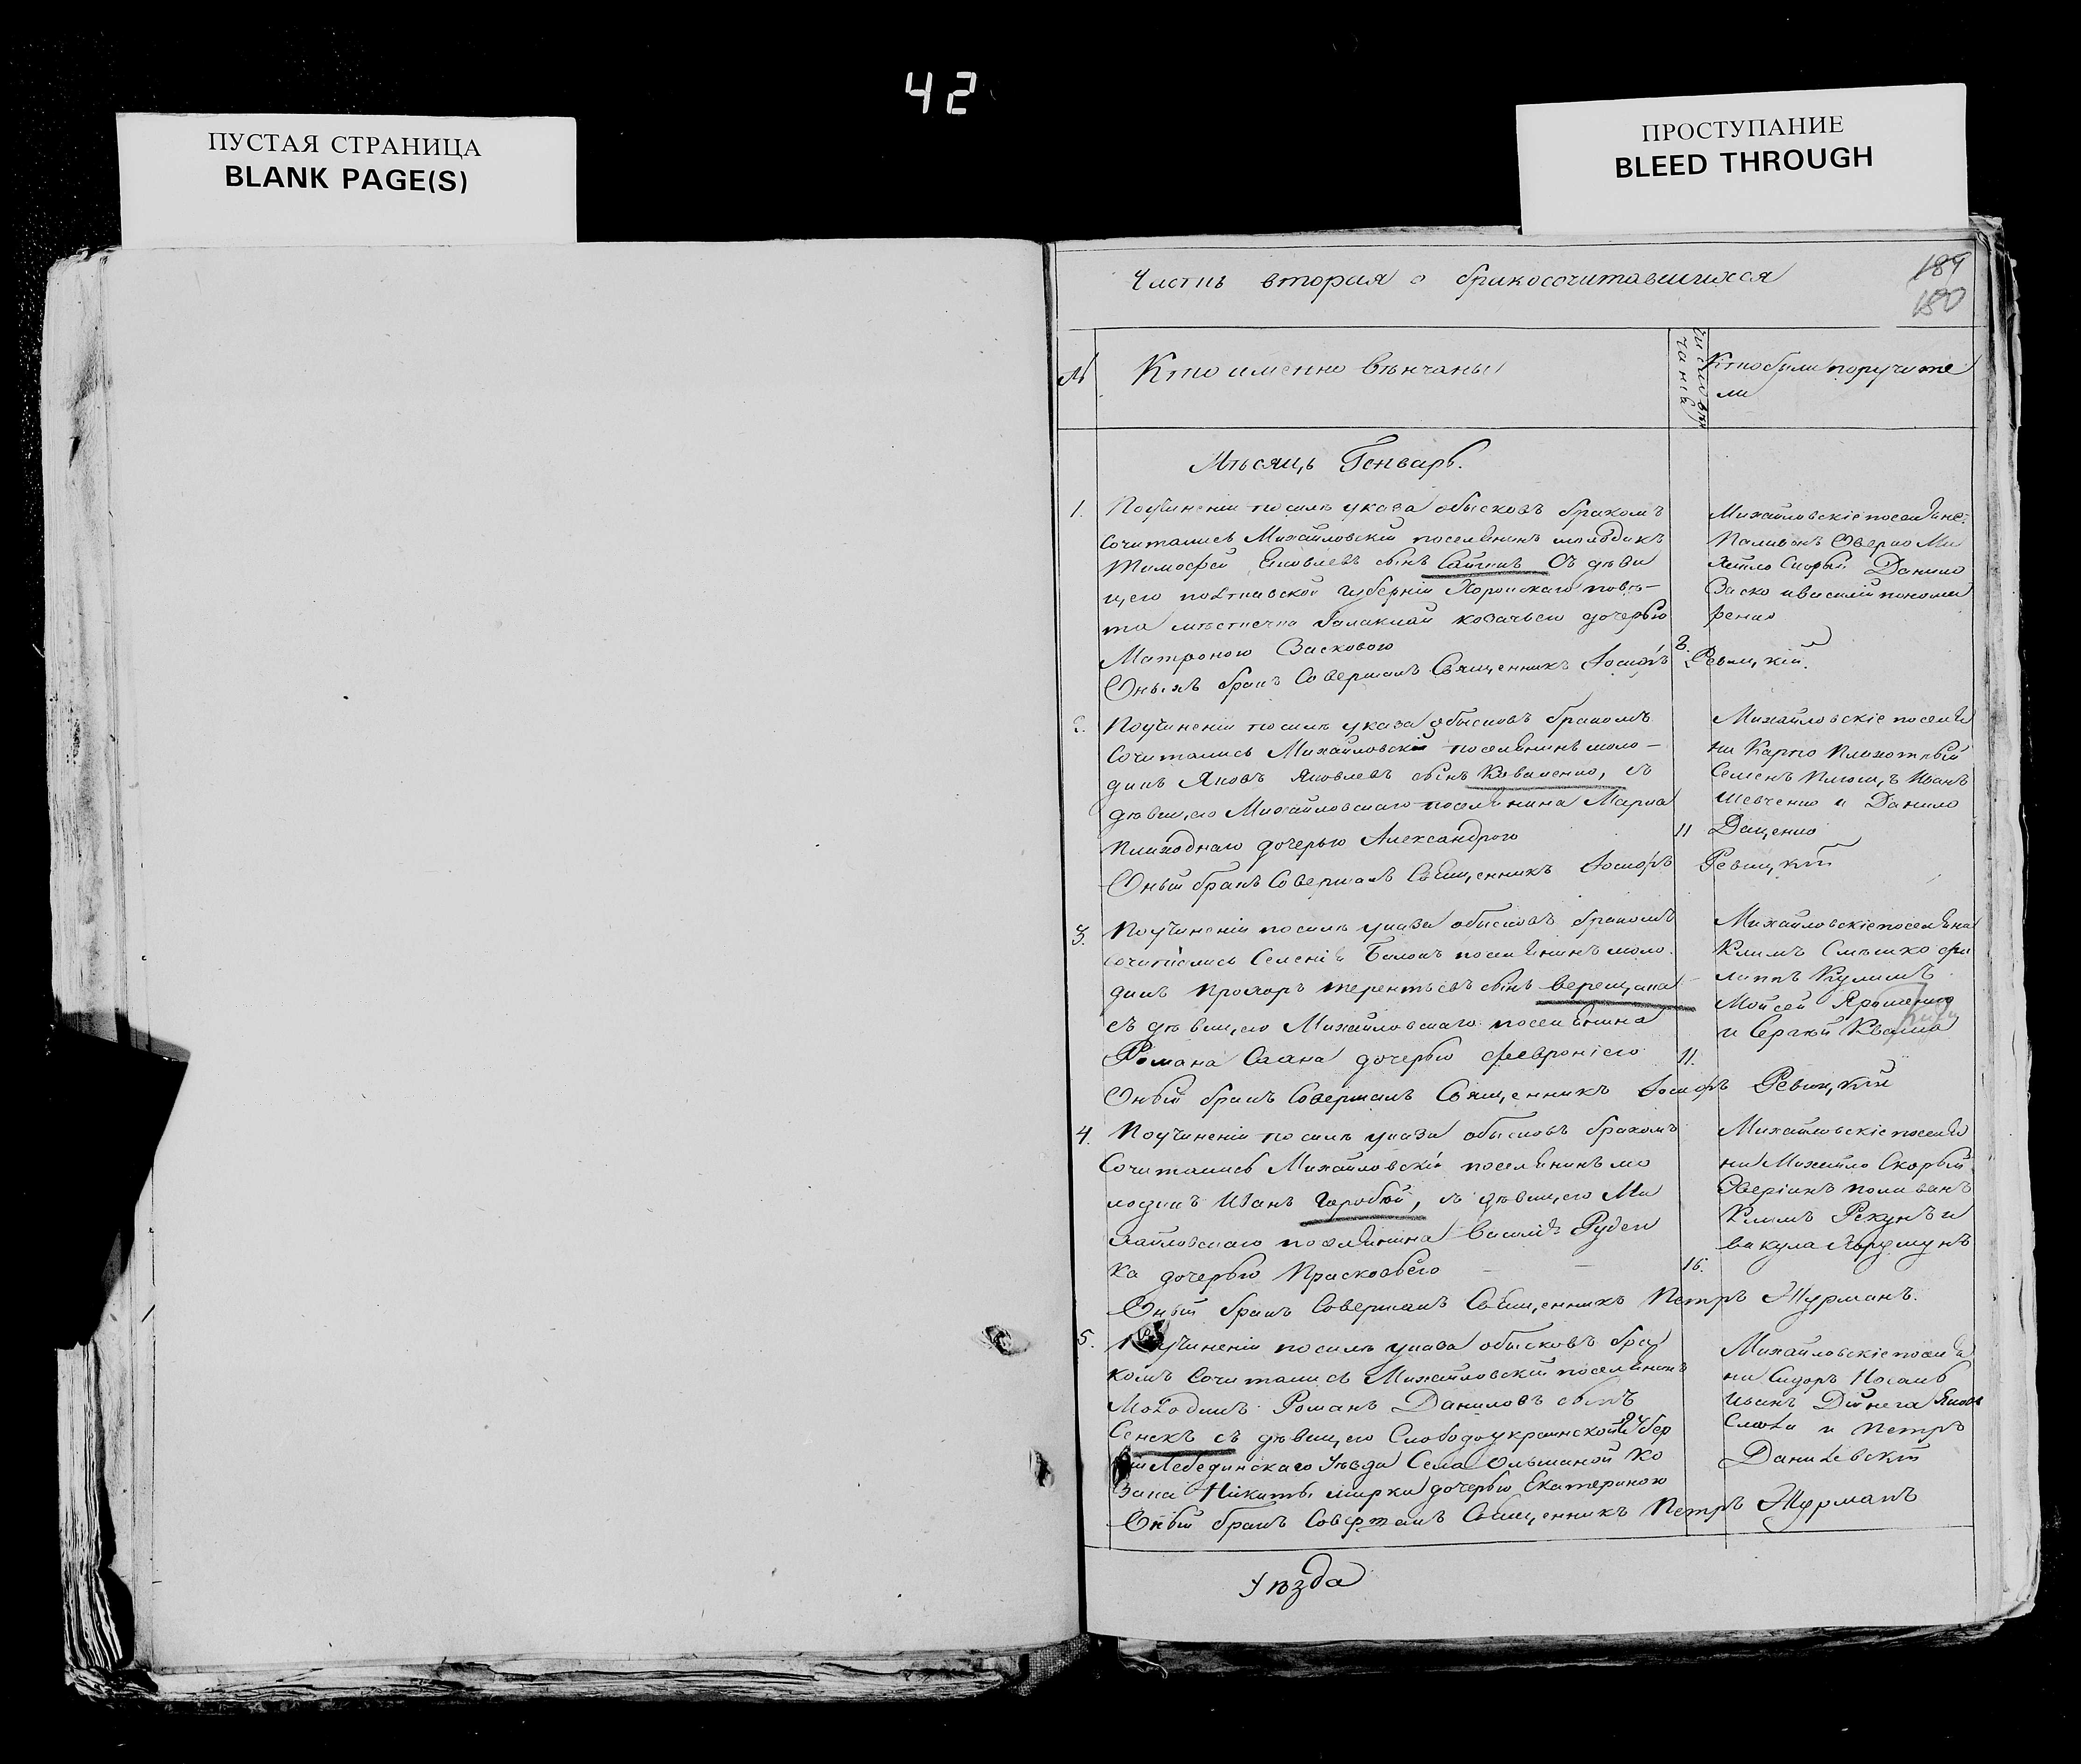 42
ПУСТАЯ СТРАНИЦА
BLANK PAGE(S)
ПРОСТУПАНИЕ
BLEED THROUGH
Часть вторая о бракосочитавшихся
184
180
№
Кто именно вѣнчаны
число вѣнчанiй
Кто были поручите
ли
Мѣсяцъ Генварь.
1.
Поучиненіи посилѣ указа обысковъ бракомъ
сочитались Михайловскій поселянинъ молодикъ
Тимофей Яковлевъ сынъ съ дѣви
цею полтавской губерніи Хорольскаго повѣ-
та мѣстечка козачьею дочерью
Матроною Засковою
8.
Оныхъ бракъ Совершалъ Священникъ Іосифъ Ревицкій.
Михайловскіе поселяне:
Поливанъ Оверко Ми
хайло Скорый Данило
Заско и василій пономаренко
2.
Поучиненіи посилѣ указа обысковъ бракомъ
Сочитались Михайловскій поселянинъ моло-
дикъ Яковъ Яковлевъ сынъ Коваленко, съ
дѣвицею Михайловскаго поселянина Марка
дочерью Александрою
11
Оный бракъ Совершалъ Священникъ Іосифъ Ревицкій
Михайловскіе поселя
ни Карпо
Семенъ Плющъ Иванъ
Шевченко и Данило
Даценко
3.
Поучиненіи посилѣ указа обысковъ бракомъ
сочитались поселянинъ моло-
дикъ Прохоръ Терентьевъ сынъ Верещака
съ дѣвицею Михайловскаго поселянина
Романа дочерью Февроніею
11.
Оный бракъ Совершалъ Священникъ Іосифъ Ревицкій
Михайловскіе поселяна
Климъ Смѣшко фи
липпъ Кулишъ
Мойсей Ярошенко
и Сергѣй Кваша
4.
Поучиненіи посилѣ указа обысковъ бракомъ
Сочитались Михайловскій поселянинъ мо
лодикъ Иванъ Горобей, съ дѣвицею Ми
хайловскаго поселянина Василія Руден
ка дочерью Прасковьею
16.
Оный бракъ Совершалъ Священникъ Петръ Журманъ.
Михайловскіе поселя
ни Михайло Скорый
Оверіанъ поливанъ
Климъ Рекунъ и
вакула Коржунъ
5.
Поучиненіи посилѣ указа обысковъ бра
комъ Сочитались Михайловскій поселянинъ
Молодикъ Романъ Даниловъ сынъ
Сенекъ съ дѣвицею Слободоукраинской губер
ніи Лебединскаго Уѣзда Села Ольшаной Ко
зака Никиты мирки дочерью Екатериною
Оный бракъ Совершалъ Священникъ Петръ Журманъ
Михайловскіе поселя
ни Сидоръ Носань
Иванъ Дійнега Яковъ
и Петръ
Данилевскій
Уѣзда